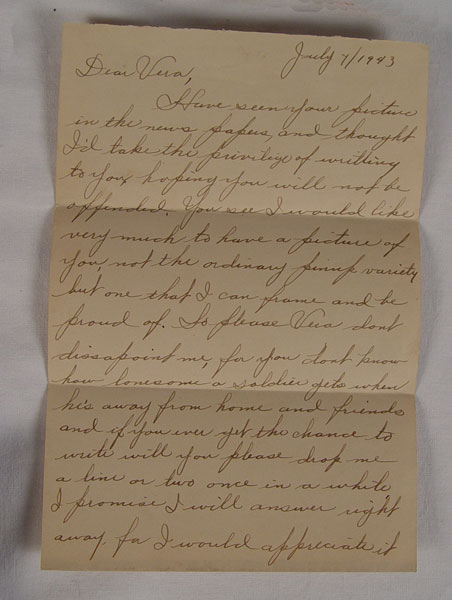 July 7/1943
Dear Vera,
I Have seen your picture
in the news papers, and thought
I'd take the privilige of writting
to you, hoping you will not be
offended. You see I would like
very much to have a picture of
you, not the ordinary pinup variety
but one that I can frame and be
proud of. So please Vera dont
dissapoint me, for you dont know
how lonesome a soldier gets when
his away from home and friends
and if you ever get the chance to
write will you please drop me
a line or two once in a while
I promise I will answer right
away, for I would appreciate it